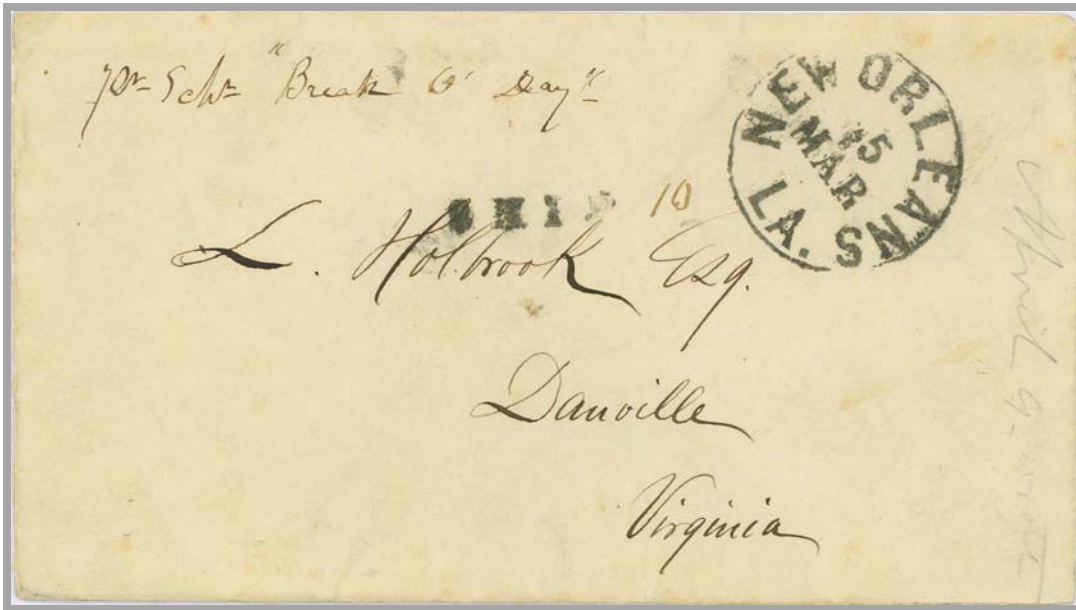 pr Schr "Break O' Day"
NEW ORLEANS
15
MAR
LA.
SHIP
10
L. Holbrook Esq.
Danville
Virginia
April 9